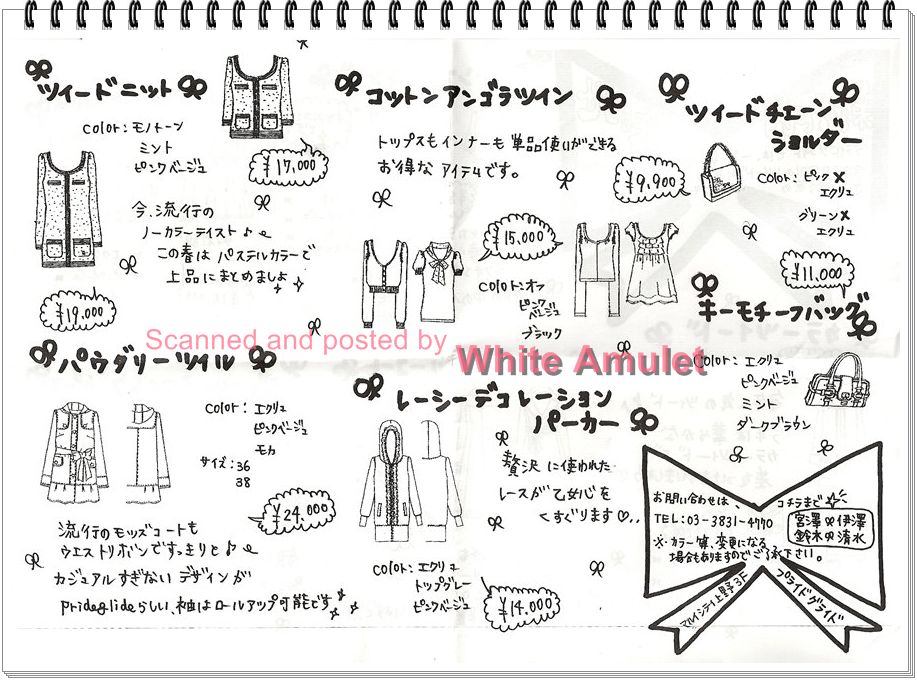 ツイードニット
color: モノトーン
ミント
ピンクベージュ
¥17,000
今、流行の
ノーカラーテイスト♪
この春は パステルカラーで
上品にまとめましょ
¥19,000
コットンアンゴラツイン
トップスもインナーも 単品使いができる
お得な アイテムです。
¥9,900
¥15,000
color: オフ
ピンクベージュ
ブラック
ツイードチェーン
ショルダー
color: ピンク×
エクリュ
グリーン×
エクリュ
¥11,000
キーモチーフバッグ
color: エクリュ
ピンクベージュ
ミント
ダークブラウン
Scanned and posted by White Amulet
パウダリーツイル
color: エクリュ
ピンクベージュ
モカ
サイズ: 36
38
¥24,000
流行のモッズコートも
ウエストリボンですっきりと♪
カジュアルすぎない デザインが
prideglideらしい、袖はロールアップ可能です
レーシーデコレーション
パーカー
贅沢に使われた
レースが乙女心を
くすぐります♡..
color: エクリュ
トップグレー
ピンクベージュ
¥14,000
お問い合わせは、コチラまで
TEL: 03-3831-4770
宮澤 伊澤
鈴木 清水
※カラー等、変更になる
場合もありますのでご了承下さい。
マルイシティ上野3F
プライドグライド